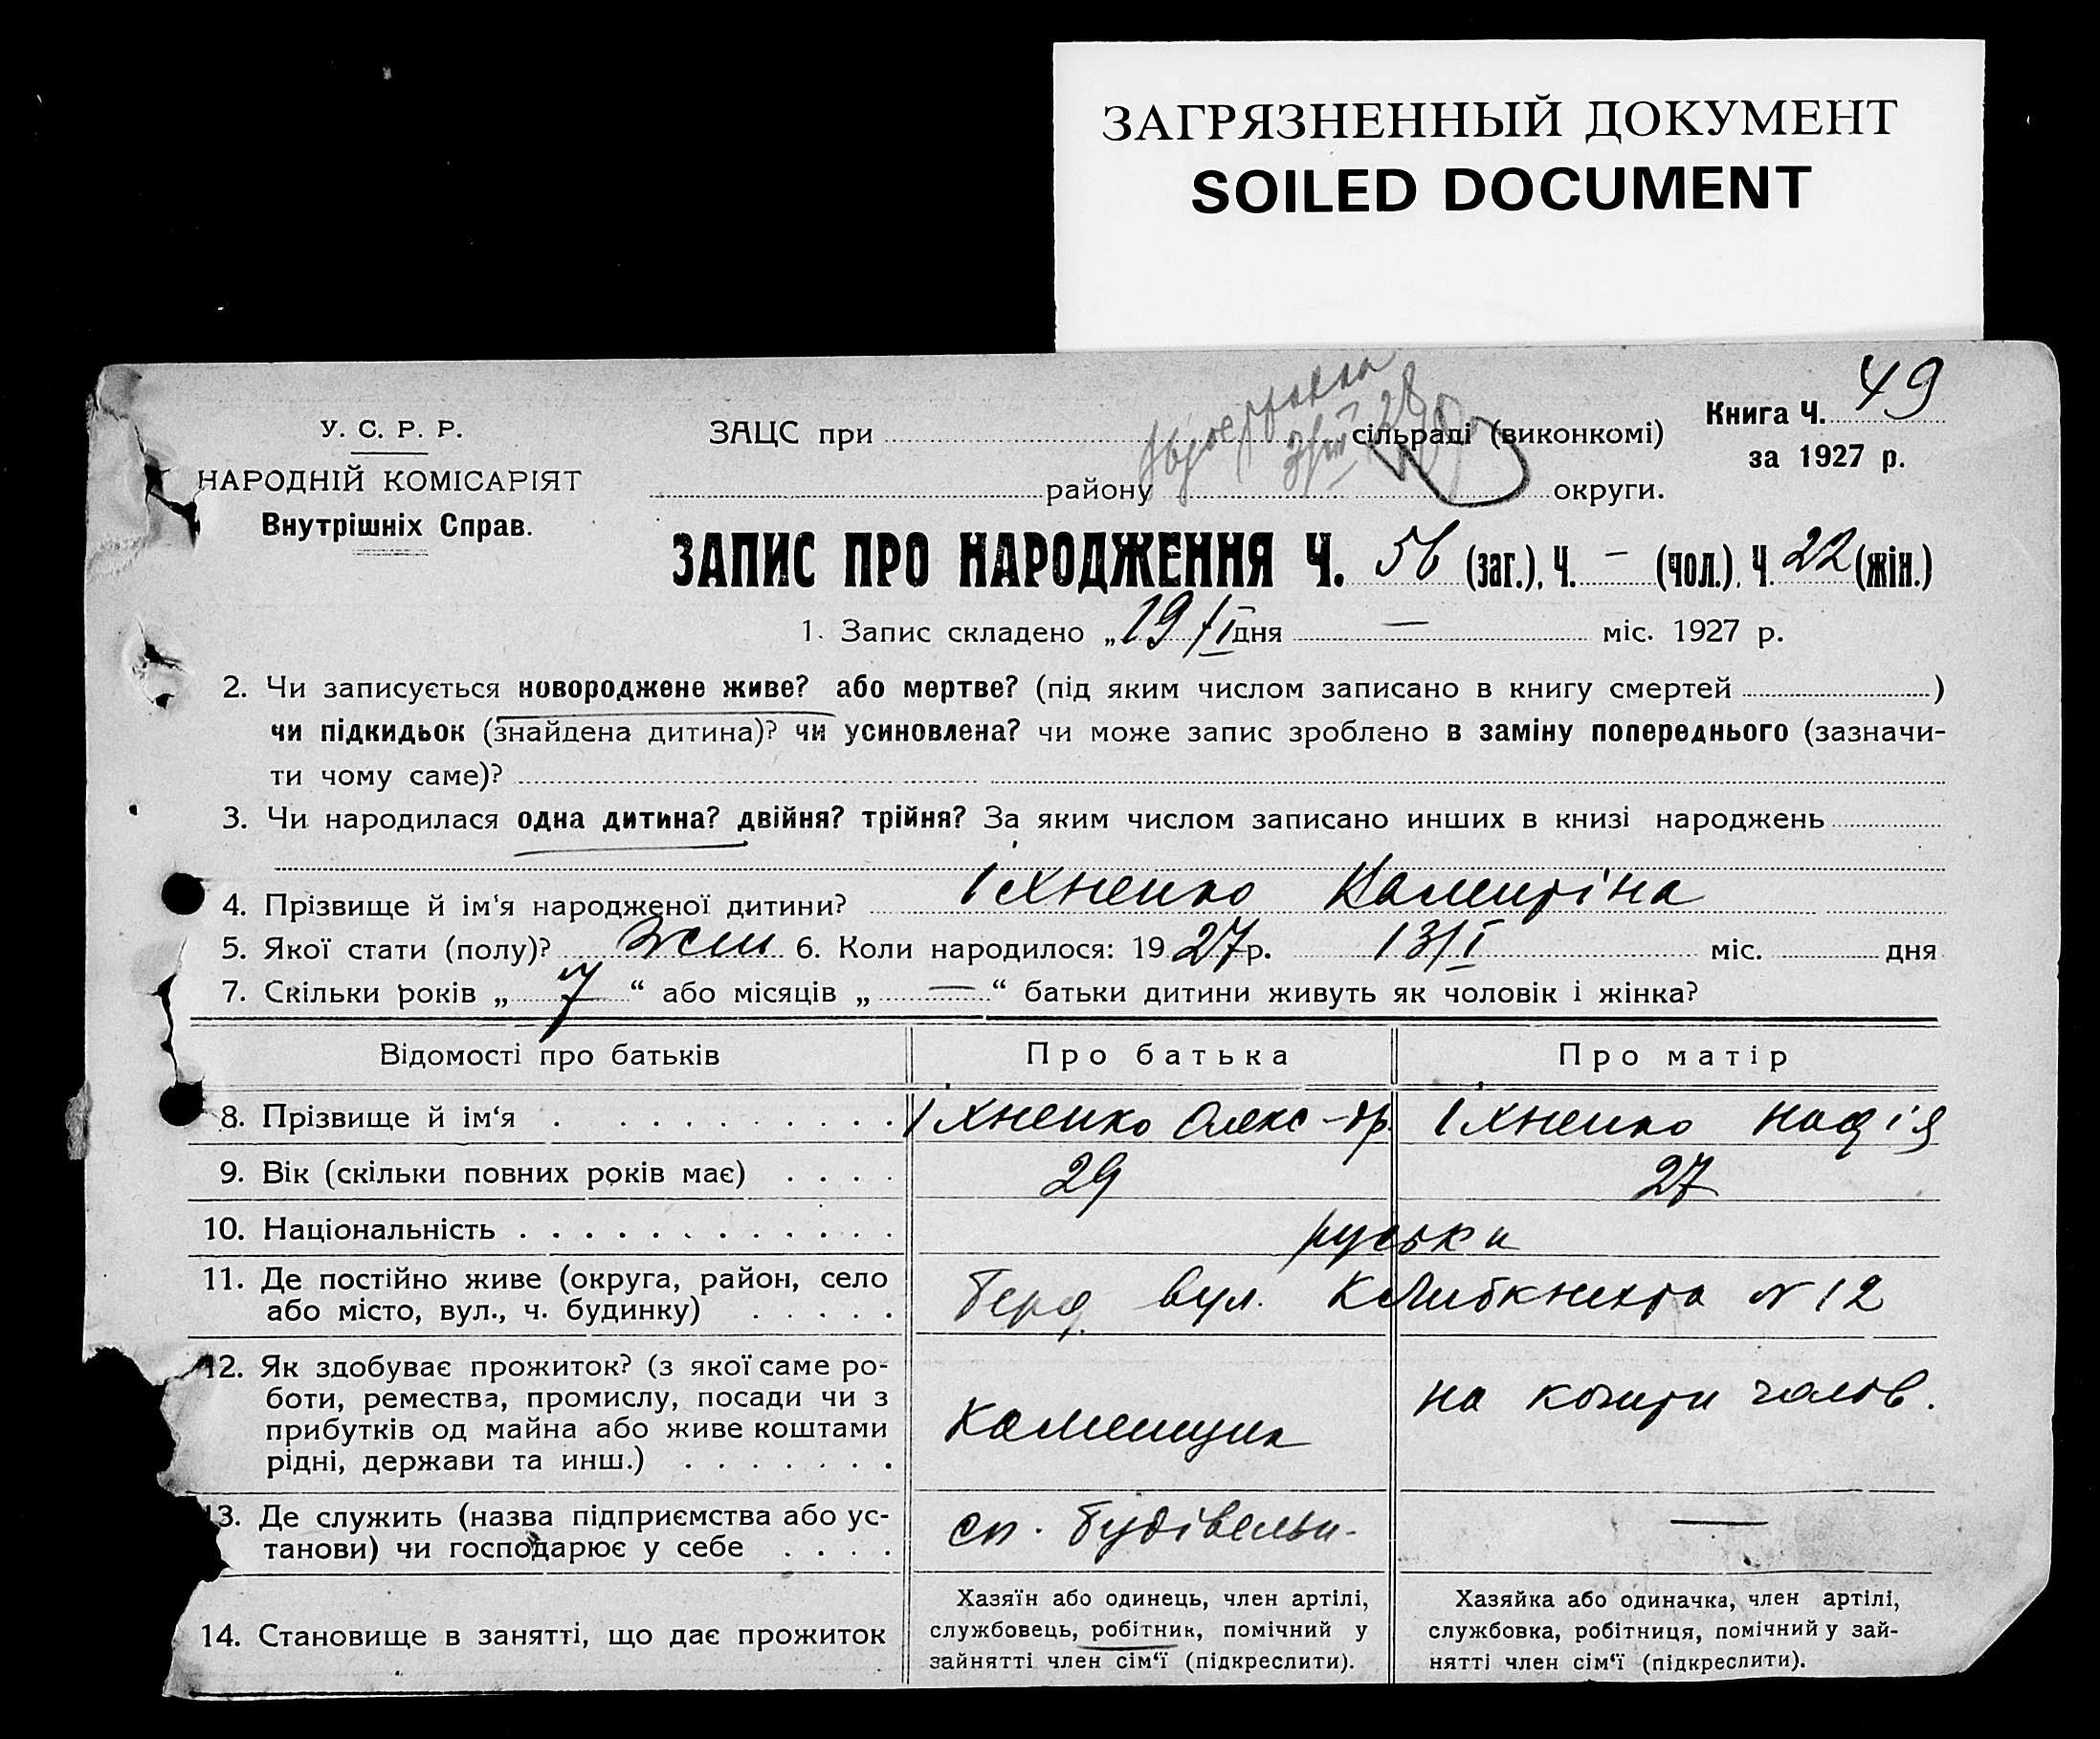 ЗАГРЯЗНЕННЫЙ ДОКУМЕНТ
SOILED DOCUMENT
Книга Ч. 49
за 1927 р.
У. С. Р. Р.
НАРОДНІЙ КОМІСАРІЯТ
Внутрішніх Справ.
ЗАЦС при сільраді (виконкомі)
району округи.
ЗАПИС ПРО НАРОДЖЕННЯ Ч. 56 (заг.), Ч. – (чол.), Ч. 22 (жін.)
1. Запис складено „19/I дня — міс. 1927 р.
2. Чи записується новороджене живе? або мертве? (під яким числом записано в книгу смертей )
чи підкидьок (знайдена дитина)? чи усиновлена? чи може запис зроблено в заміну попереднього (зазначи-
ти чому саме)?
3. Чи народилася одна дитина? двійня? трійня? За яким числом записано инших в книзі народжень
4. Прізвище й ім'я народженої дитини? Іхненко
5. Якої стати (полу)? жін 6. Коли народилося: 1927 р. 13/I міс. дня
7. Скільки років „ 7 “ або місяців „ — “ батьки дитини живуть як чоловік і жінка?
Відомості про батьків Про батька Про матір
8. Прізвище й ім'я Іхненко Олекс-др. Іхненко Надія
9. Вік (скільки повних років має) 29 27
10. Національність руськи
11. Де постійно живе (округа, район, село
або місто, вул., ч. будинку) Берд. вул. К Либкнехта № 12
12. Як здобуває прожиток? (з якої саме ро-
боти, ремества, промислу, посади чи з
прибутків од майна або живе коштами
рідні, держави та инш.) Каменщик на кошти чолов.
13. Де служить (назва підприємства або ус-
танови) чи господарює у себе сп. будівельн. —
14. Становище в занятті, що дає прожиток
Хазяїн або одинець, член артілі,
службовець, робітник, помічний у
зайнятті член сім'ї (підкреслити).
Хазяйка або одиначка, член артілі,
службовка, робітниця, помічний у зай-
нятті член сім'ї (підкреслити).